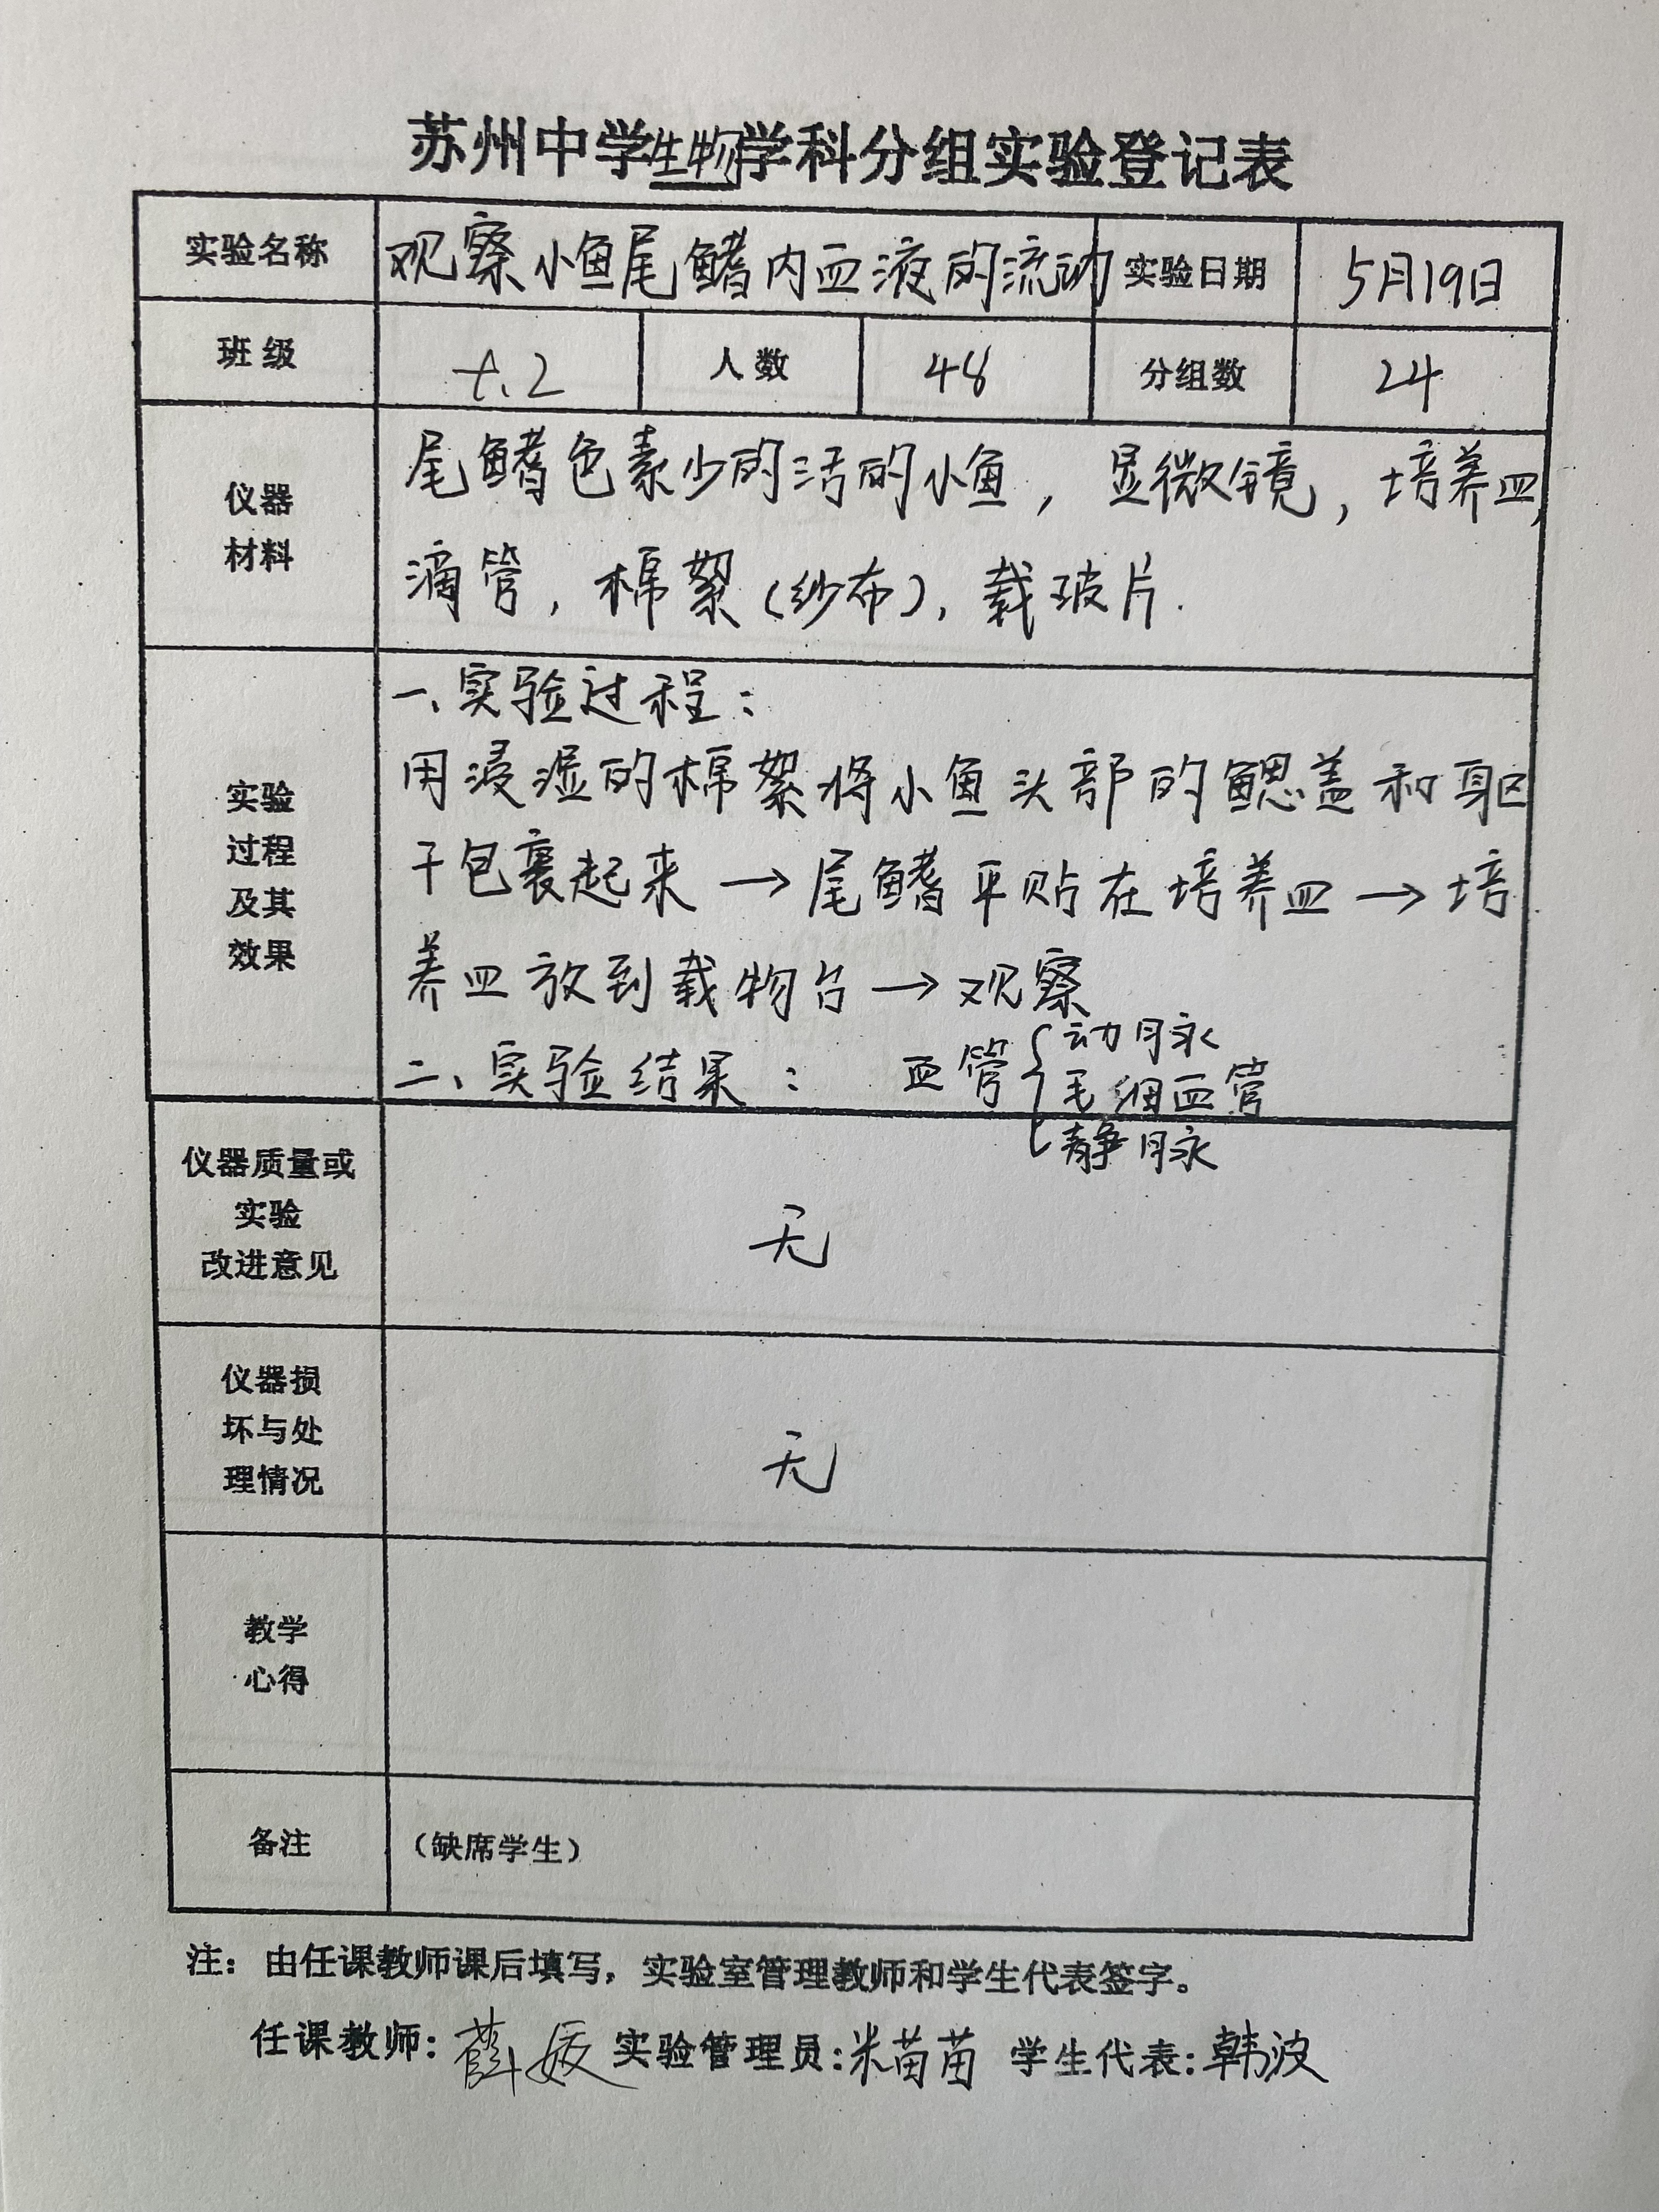 苏州中学生物学科分组实验登记表
实验名称 观察小鱼尾鳍内血液的流动 实验日期 5月19日
班级 七.2 人数 48 分组数 24
仪器
材料
尾鳍色素少的活的小鱼，显微镜，培养皿，
滴管，棉絮（纱布），载玻片.
实验
过程
及其
效果
一、实验过程：
用浸湿的棉絮将小鱼头部的鳃盖和躯
干包裹起来→尾鳍平贴在培养皿→培
养皿放到载物台→观察
二、实验结果： 血管{动脉
毛细血管
静脉
仪器质量或
实验
改进意见
无
仪器损
坏与处
理情况
无
教学
心得
备注 （缺席学生）
注：由任课教师课后填写，实验室管理教师和学生代表签字。
任课教师：薛媛 实验管理员：米苗苗 学生代表：韩波